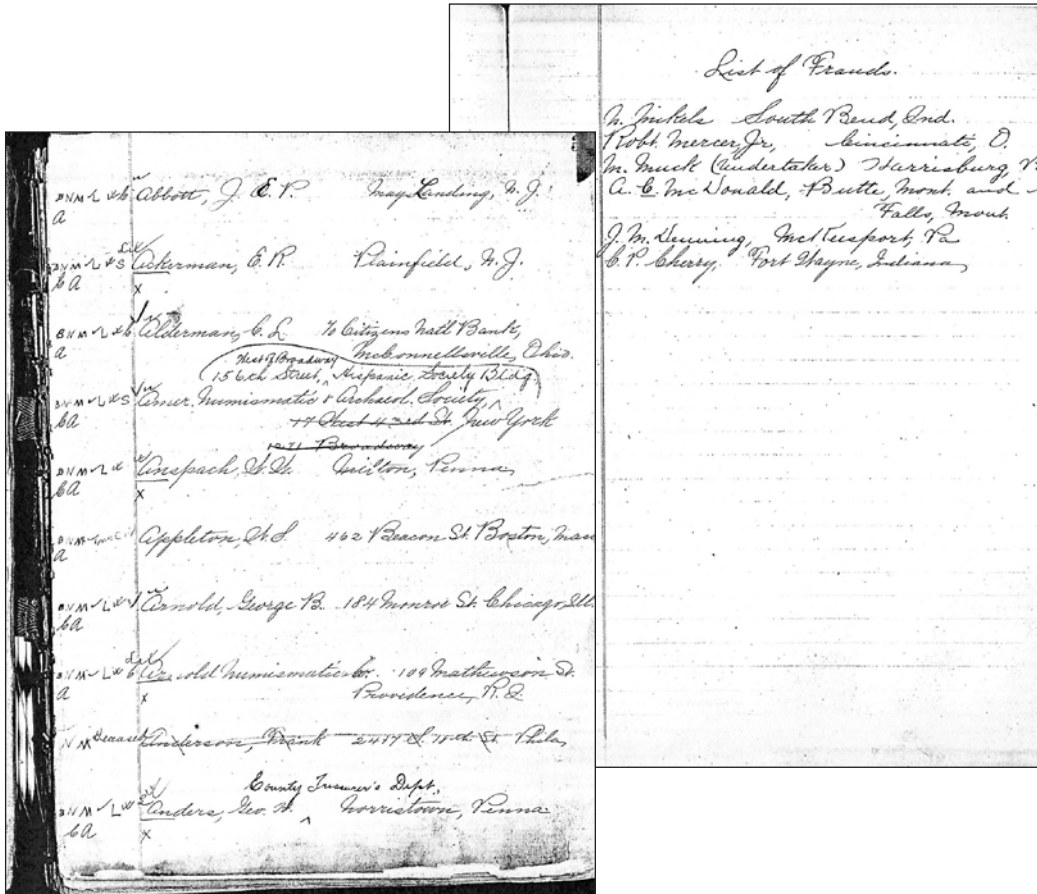 List of Frauds.
N. Nikels South Bend, Ind.
Robt. Mercer, Jr., Cincinnati, O.
M. Muck (Undertaker) Harrisburg
A. C. McDonald, Butte, Mont. and
Falls, Mont.
J. M. Denning, McKeesport, Pa
C. P. Cherry, Fort Wayne, Indiana
Abbott, J. E. P. Mays Landing, N. J.
A
Ackerman, E. R. Plainfield, N. J.
6A
x
Alderman, C. L. % Citizens Natl Bank,
A
McConnellsville, Ohio.
West of Broadway
156th Street, ^ Hispanic Society Bldg.
Amer. Numismatic & Archaeol. Society, ^
6A
17 East 43rd St. New York
1271 Broadway
Anspach, Milton, Penna
6A
x
Appleton, 462 Beacon St. Boston, Mass
A
Arnold, George B. 184 Monroe St. Chicago, Ill.
6A
Arnold Numismatic Co. 109 Mathewson St.
A
Providence, R. I.
x
N M Deceased Anderson, Frank 2417 St Phila
County Treasurer's Dept.
Anders, Geo. W. ^ Norristown, Penna.
6A
x